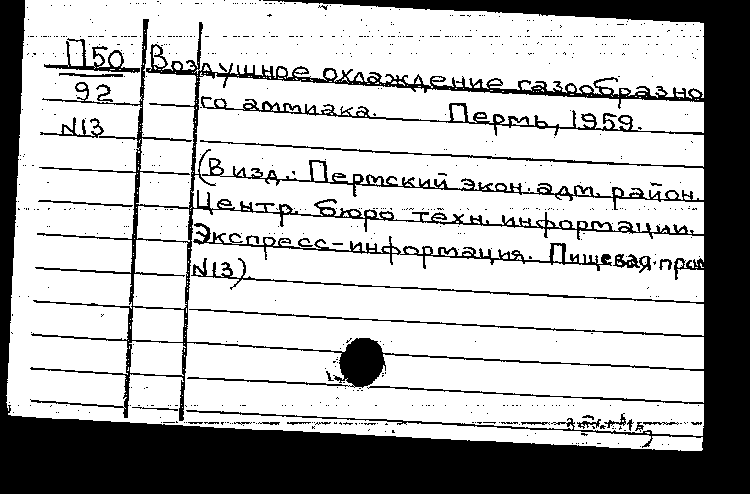 П50 Воздушное охлаждение газообразно
92 го аммиака. Пермь, 1959.
N13
(В изд.: Пермский экон. адм. район.
Центр. бюро техн. информации.
Экспресс-информация. Пищевая пром
N13).